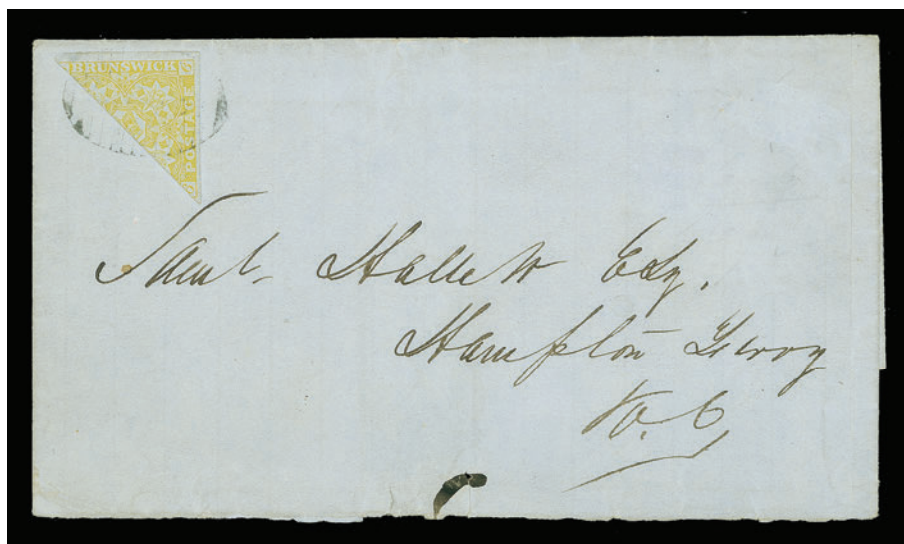 BRUNSWICK
POSTAGE
Saml. Hallett Esq.
Hampton Ferry
K. C.